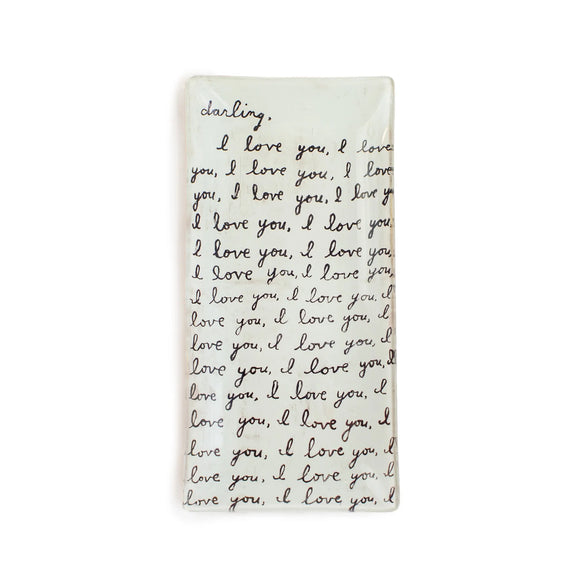 darling,
I love you, I love
you, I love you, I love
you, I love you, I love you
I love you, I love you,
I love you, I love you,
I love you, I love you,
I love you, I love you, I
love you, I love you, I
love you, I love you, I
love you, I love you, I
love you, I love you, I
love you, I love you, I
love you, I love you, I
love you, I love you, I
love you, I love you, I